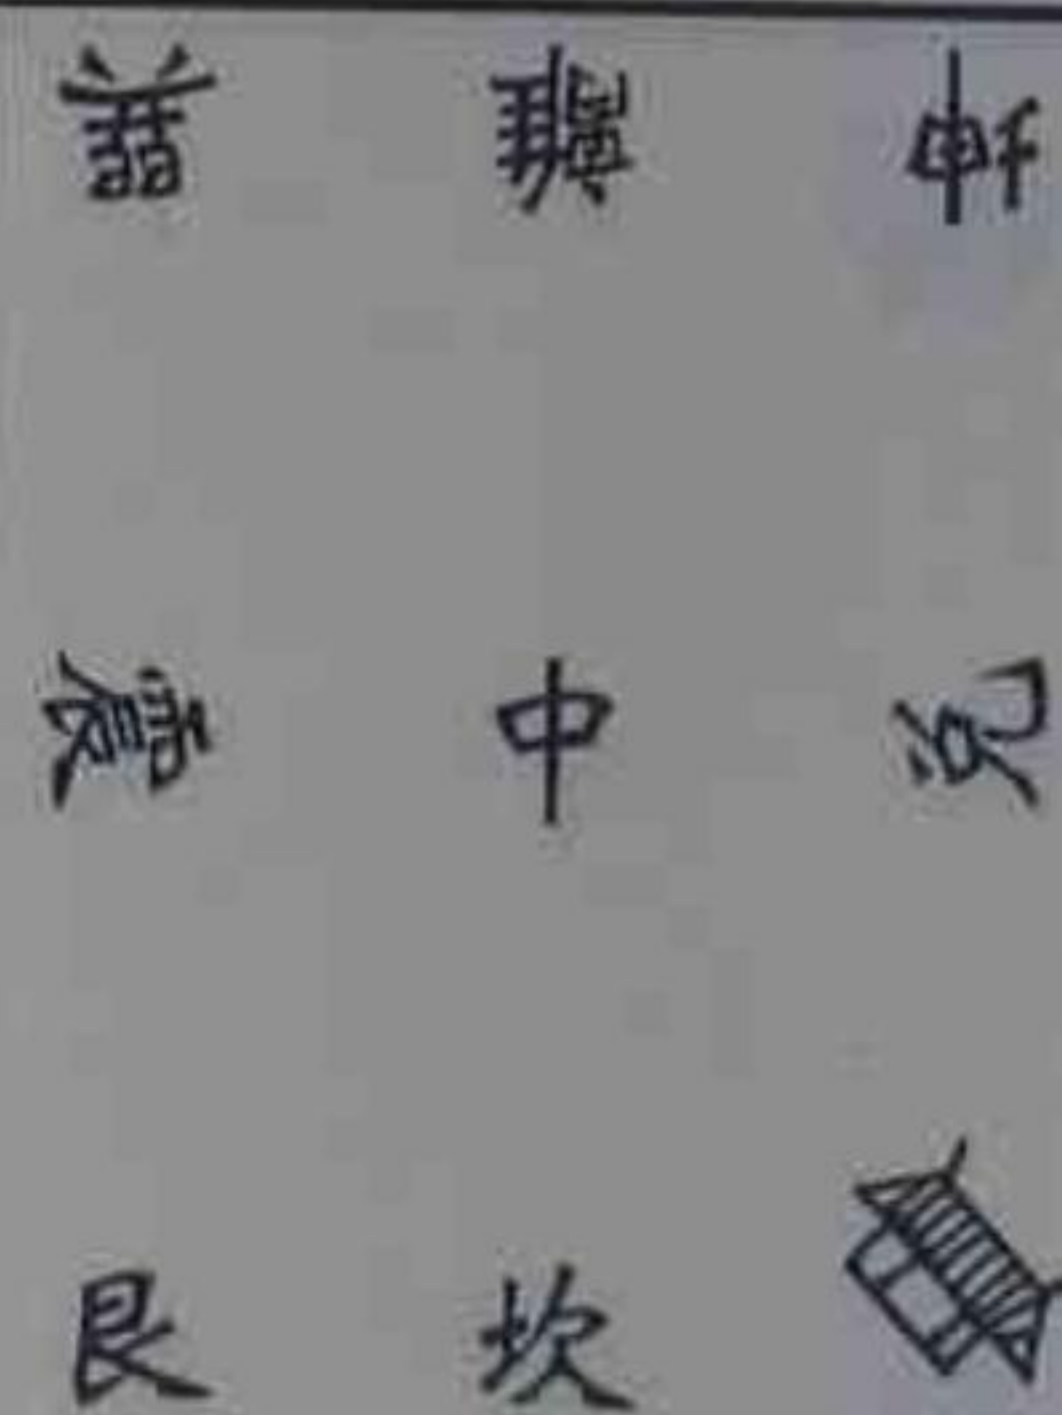 巽 離 坤
震 中 兌
艮 坎